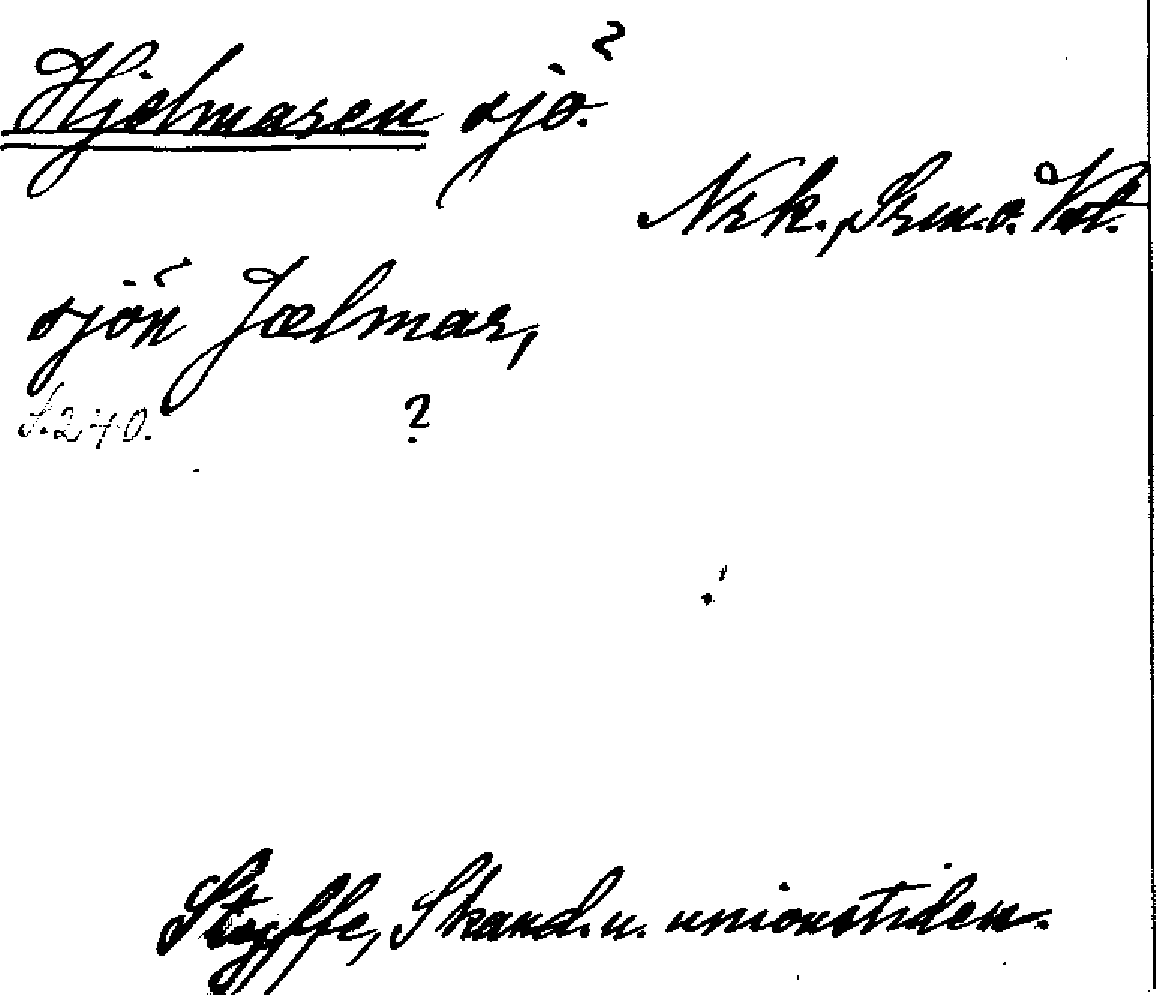 Hjelmaren sjö. ?
Nrk., Srm. o. Vstl.
sjön Jælmar,
S. 240. ?
Styffe, Skand. u. unionstiden.